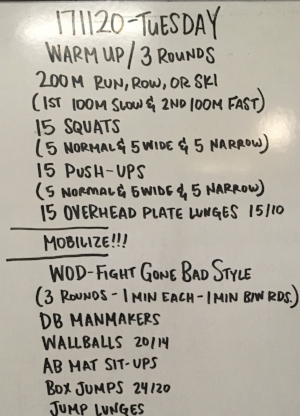 171120-TUESDAY
WARM UP / 3 ROUNDS
200M RUN, ROW, OR SKI
(1ST 100M SLOW & 2ND 100M FAST)
15 SQUATS
(5 NORMAL & 5 WIDE & 5 NARROW)
15 PUSH-UPS
(5 NORMAL & 5 WIDE & 5 NARROW)
15 OVERHEAD PLATE LUNGES 15/10
MOBILIZE!!!
WOD-FIGHT GONE BAD STYLE
(3 ROUNDS - 1 MIN EACH - 1 MIN B/W RDS.)
DB MANMAKERS
WALLBALLS 20/14
AB MAT SIT-UPS
BOX JUMPS 24/20
JUMP LUNGES